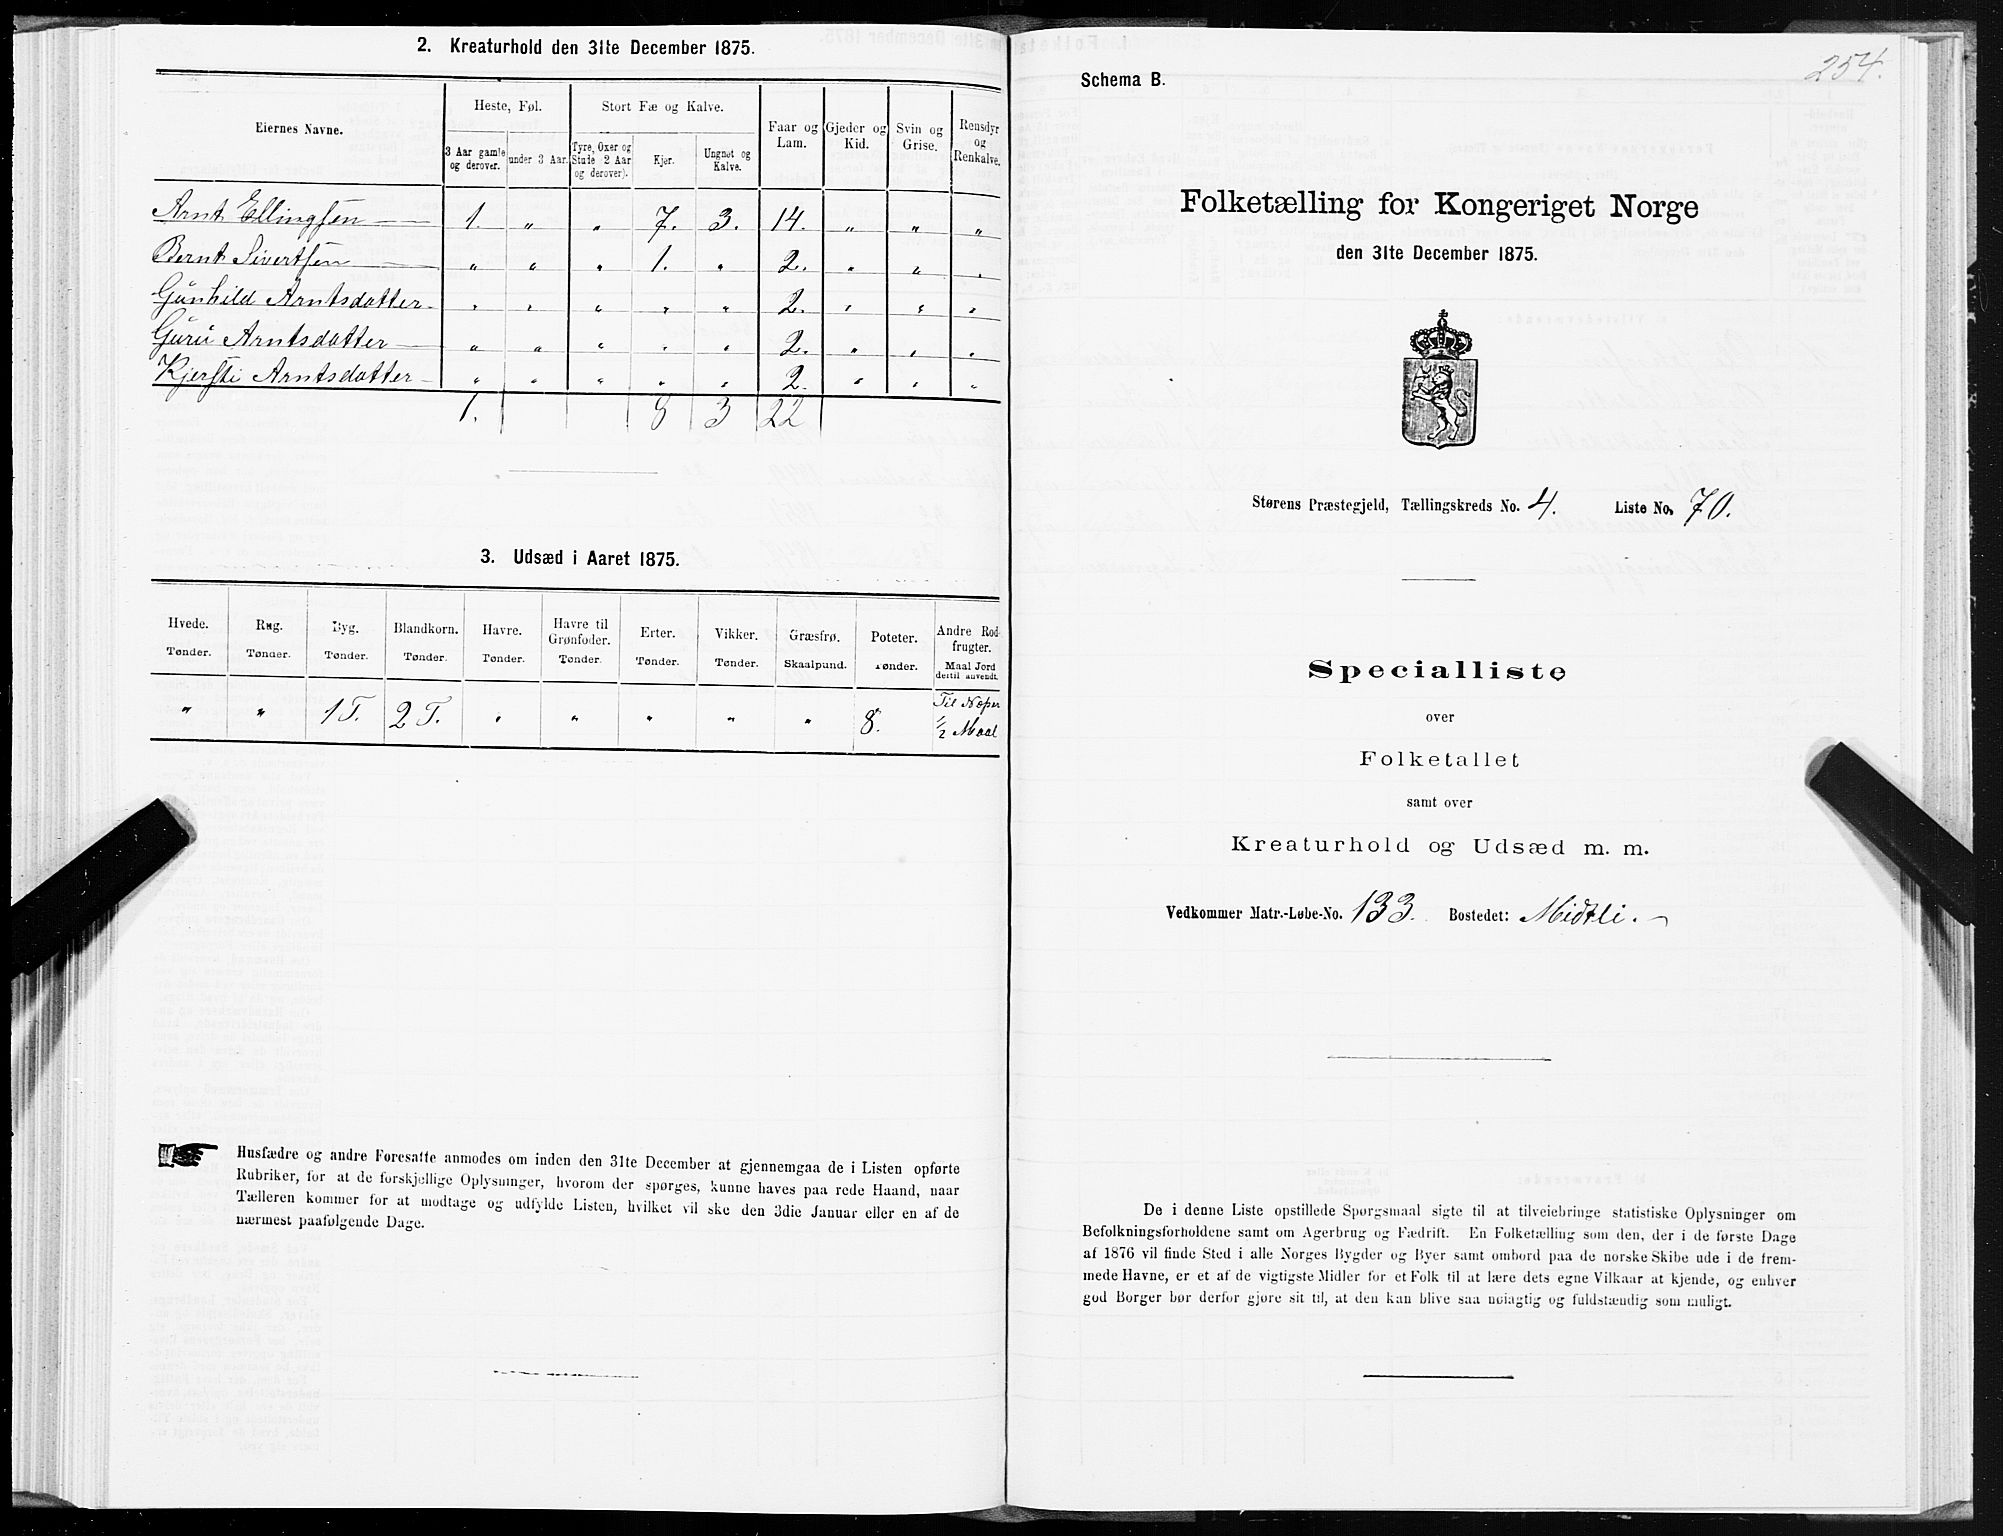 2. Kreaturhold den 31te December 1875.
Eiernes Navne.
Heste, Føl.
Stort Fæ og Kalve.
Faar og Lam.
Gjeder og Kid.
Svin og Grise.
Rensdyr og Renkalve.
3 Aar gamle og derover.
under 3 Aar.
Tyre, Oxer og Stude 2 Aar og derover).
Kjer.
Ungnøt og Kalve.
Arnt Ellingsen 1. " " 7. 3. 14. " " "
Bernt Sivertsen " " " 1. " 2. " " "
Gunhild Arntsdatter " " " " " 2. " " "
Guru Arntsdatter " " " " " 2. " " "
Kjersti Arntsdatter " " " " " 2. " " "
1. 8 3 22
3. Udsæd i Aaret 1875.
Hvede. Rug. Byg. Blandkorn. Havre. Havre til Grønfoder. Erter. Vikker. Græsfrø. Poteter. Andre Rodfrugter.
Tønder. Tønder. Tønder. Tønder. Tønder. Tønder. Tønder. Tønder. Skaalpund. Tønder. Maal Jord dertil anvendt.
" " 1 T. 2 T. " " " " " 8. Til Næper ½ Maal
Husfædre og andre Foresatte anmodes om inden den 31te December at gjennemgaa de i Listen opførte
Rubriker, for at de forskjellige Oplysninger, hvorom der spørges, kunne haves paa rede Haand, naar
Tælleren kommer for at modtage og udfylde Listen, hvilket vil ske den 3die Januar eller en af de
nærmest paafølgende Dage.
254.
Schema B.
Folketælling for Kongeriget Norge
den 31te December 1875.
Størens Præstegjeld, Tællingskreds No. 4. Liste No. 70.
Specialliste
over
Folketallet
samt over
Kreaturhold og Udsæd m. m.
Vedkommer Matr.-Løbe-No. 133. Bostedet: Midtli.
De i denne Liste opstillede Spørgsmaal sigte til at tilveiebringe statistiske Oplysninger om
Befolkningsforholdene samt om Agerbrug og Fædrift. En Folketælling som den, der i de første Dage
af 1876 vil finde Sted i alle Norges Bygder og Byer samt ombord paa de norske Skibe ude i de frem-
mede Havne, er et af de vigtigste Midler for et Folk til at lære dets egne Vilkaar at kjende, og enhver
god Borger bør derfor gjøre sit til, at den kan blive saa nøiagtig og fuldstændig som muligt.